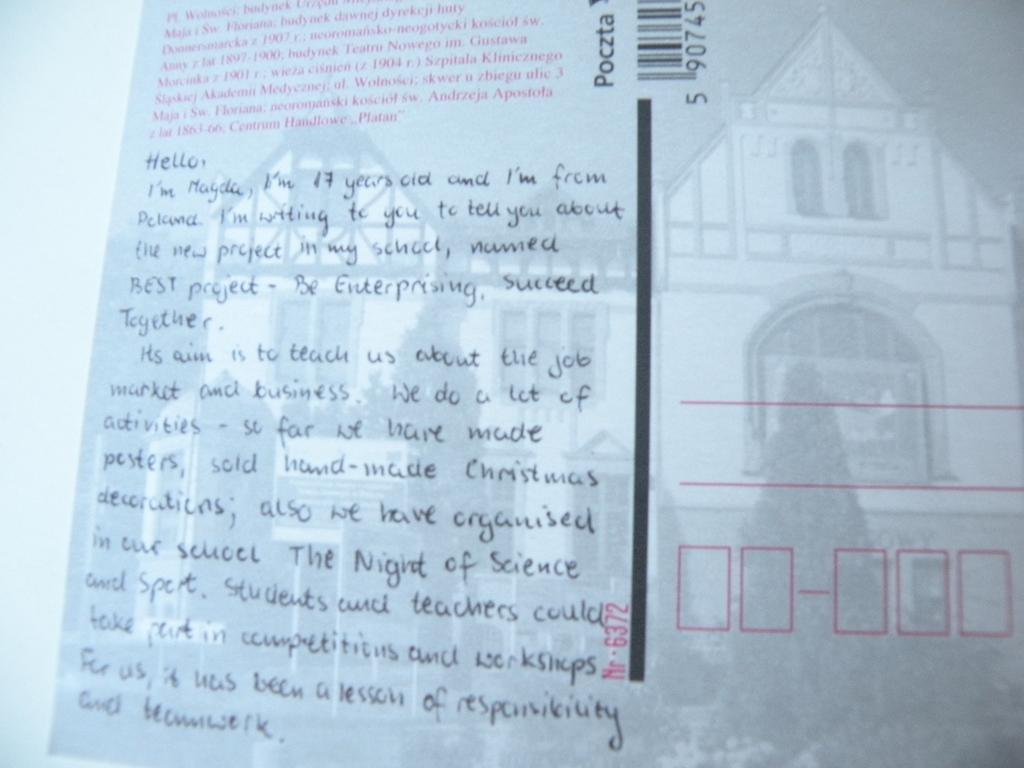 Pl. Wolności; budynek Urzędu
Maja i Św. Floriana; budynek dawnej dyrekcji huty
Donnersmarcka z 1907 r.; neoromańsko-neogotycki kościół św.
Anny z lat 1897-1900; budynek Teatru Nowego im. Gustawa
Morcinka z 1901 r.; wieża ciśnień (z 1904 r.) Szpitala Klinicznego
Śląskiej Akademii Medycznej; ul. Wolności; skwer u zbiegu ulic 3
Maja i Św. Floriana; neoromański kościół św. Andrzeja Apostoła
z lat 1863-66; Centrum Handlowe „Platan"
Hello,
I'm Magda, I'm 17 years old and I'm from
Poland. I'm writing to you to tell you about
the new project in my school, named
BEST project - Be Enterprising, Succeed
Together.
Its aim is to teach us about the job
market and business. We do a lot of
activities - so far we have made
posters, sold hand-made Christmas
decorations; also we have organised
in our school The Night of Science
and Sport. Students and teachers could
take part in competitions and workshops.
For us, it has been a lesson of responsibility
and teamwork.
Nr 6372
Poczta
5 90745